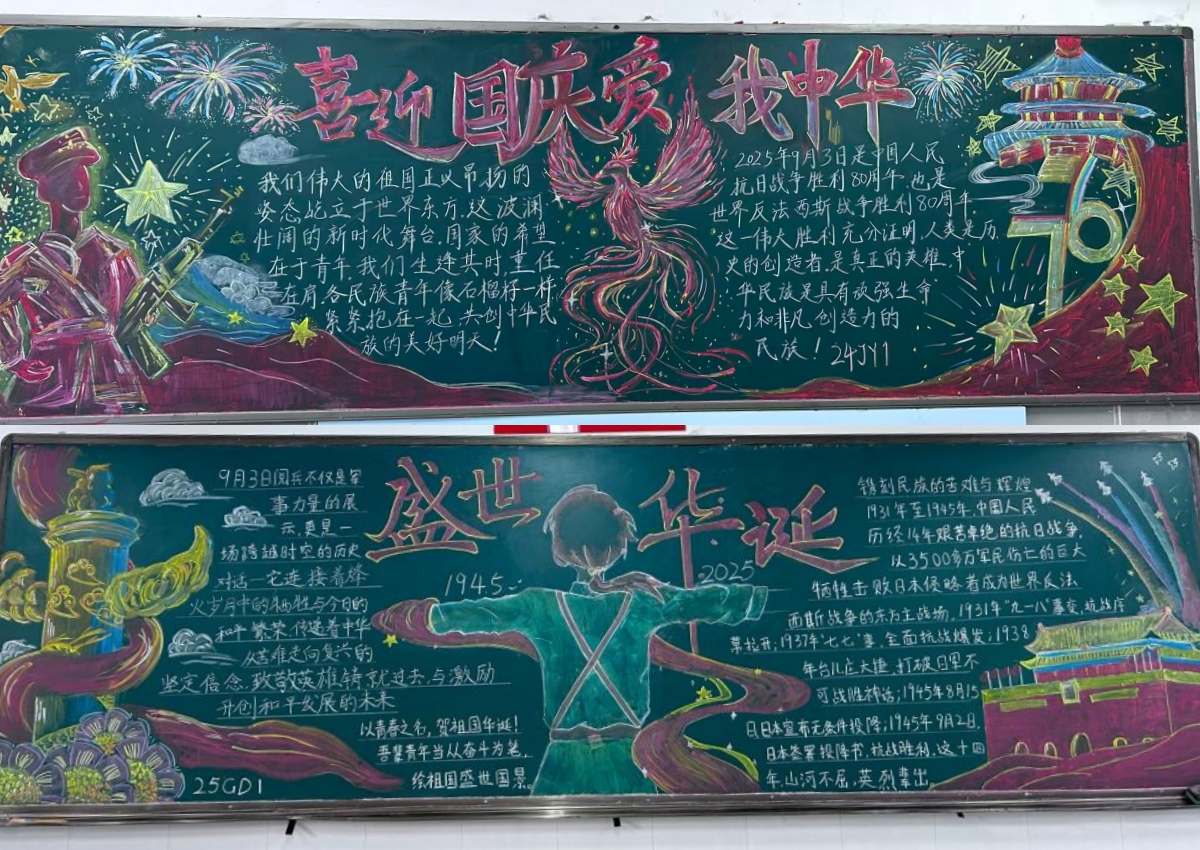 喜迎国庆爱我中华
我们伟大的祖国正以昂扬的
姿态屹立于世界东方,这波澜
壮阔的新时代舞台,国家的希望
在于青年,我们生逢其时,重任
在肩,各民族青年像石榴籽一样
紧紧抱在一起,共创中华民
族的美好明天!
2025年9月3日是中国人民
抗日战争胜利80周年,也是
世界反法西斯战争胜利80周年
这一伟大胜利充分证明,人类是历
史的创造者,是真正的英雄,中
华民族是具有顽强生命
力和非凡创造力的
民族!24JY1
76
盛世华诞
1945
2025
9月3日阅兵不仅是军
事力量的展
示,更是一
场跨越时空的历史
对话一它连接着烽
火岁月中的牺牲与今日的
和平繁荣,传递着中华
从苦难走向复兴的
坚定信念,致敬英雄铸就过去,与激励
开创和平发展的未来
以青春之名,贺祖国华诞!
吾辈青年当以奋斗为笔,
绘祖国盛世国景。
25GD1
镌刻民族的苦难与辉煌
1931年至1945年,中国人民
历经14年艰苦卓绝的抗日战争,
以3500多万军民伤亡的巨大
牺牲击败日本侵略者成为世界反法
西斯战争的东方主战场,1931年"九一八"事变,抗战序
幕拉开;1937年"七七"事,全面抗战爆发;1938
年台儿庄大捷,打破日军不
可战胜神话;1945年8月15
日日本宣布无条件投降;1945年9月2日,
日本签署投降书,抗战胜利,这十四
年,山河不屈,英烈辈出